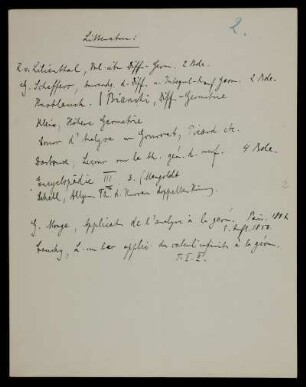 2.
Litteratur:
R. v. Lilienthal, Vorl. über Diff.-Geom. 2 Bde.
G. Scheffers, Anwendg. d. Diff. u. Integral- auf Geom. 2 Bde.
Knoblauch. / Bianchi, Diff.-Geometrie
Klein, Höhere Geometrie
Cours d'Analyse von Goursat, Picard etc.
Darboux, Leçons sur la th. gén. d. surf. 4 Bde.
Encyclopädie III 3. / Mangoldt
Schell, Allgem. Th. d. Kurven doppelter Krümmung
G. Monge, Application de l'analyse à la géom. Paris,
5. Aufl. 1850.
Cauchy, Leçons sur les applic. du calcul infinit. à la géom.
T. I. II.